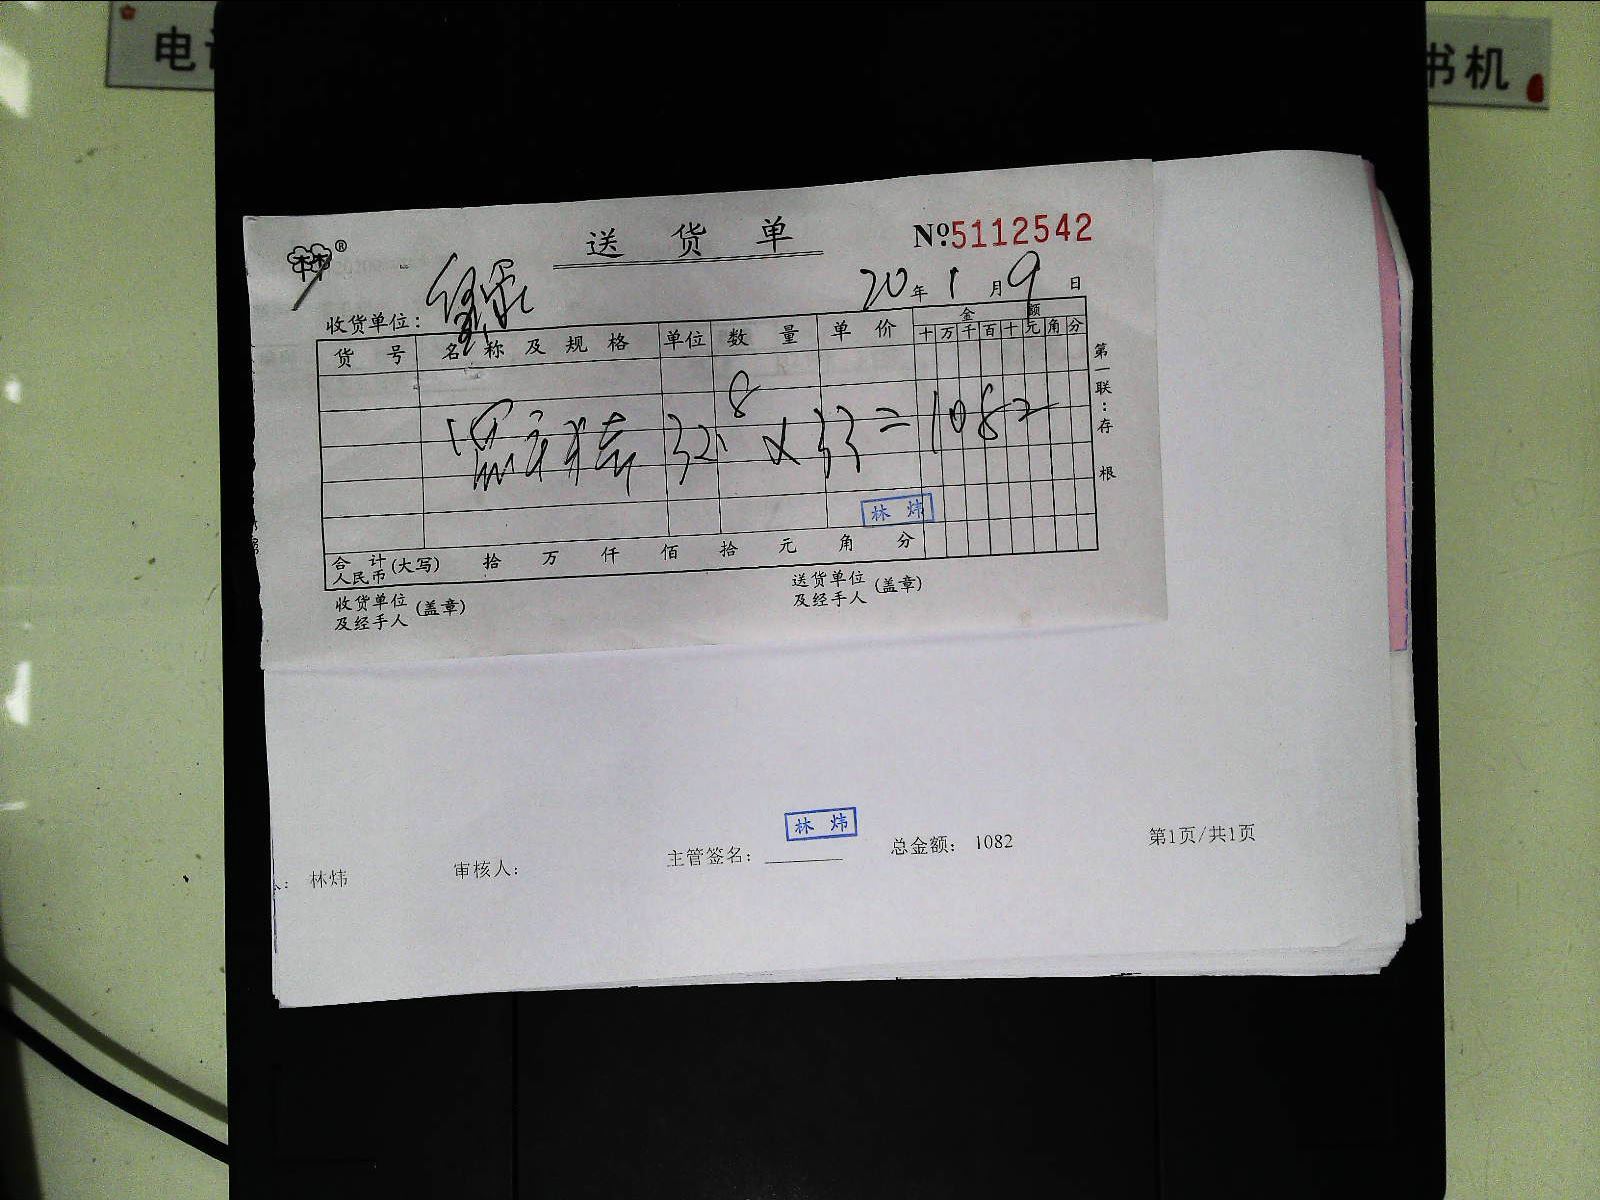 电
书机
送货单
№5112542
20年1月9日
收货单位:
货号 名称及规格 单位 数量 单价 金额
十万千百十元角分
8
32. × 33 = 1082
林炜
合计(大写) 拾 万 仟 佰 拾 元 角 分
人民币
收货单位
及经手人(盖章)
送货单位
及经手人(盖章)
第一联:存根
林炜
林炜 审核人: 主管签名: 总金额: 1082 第1页/共1页